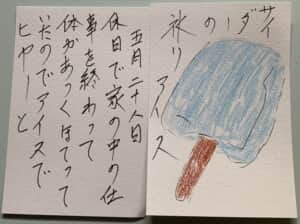 サイ
ダーの
氷りアイス
五月二十八日
休日で家の中の仕
事を終わって
体があつくほてって
いたのでアイスで
ヒヤーと